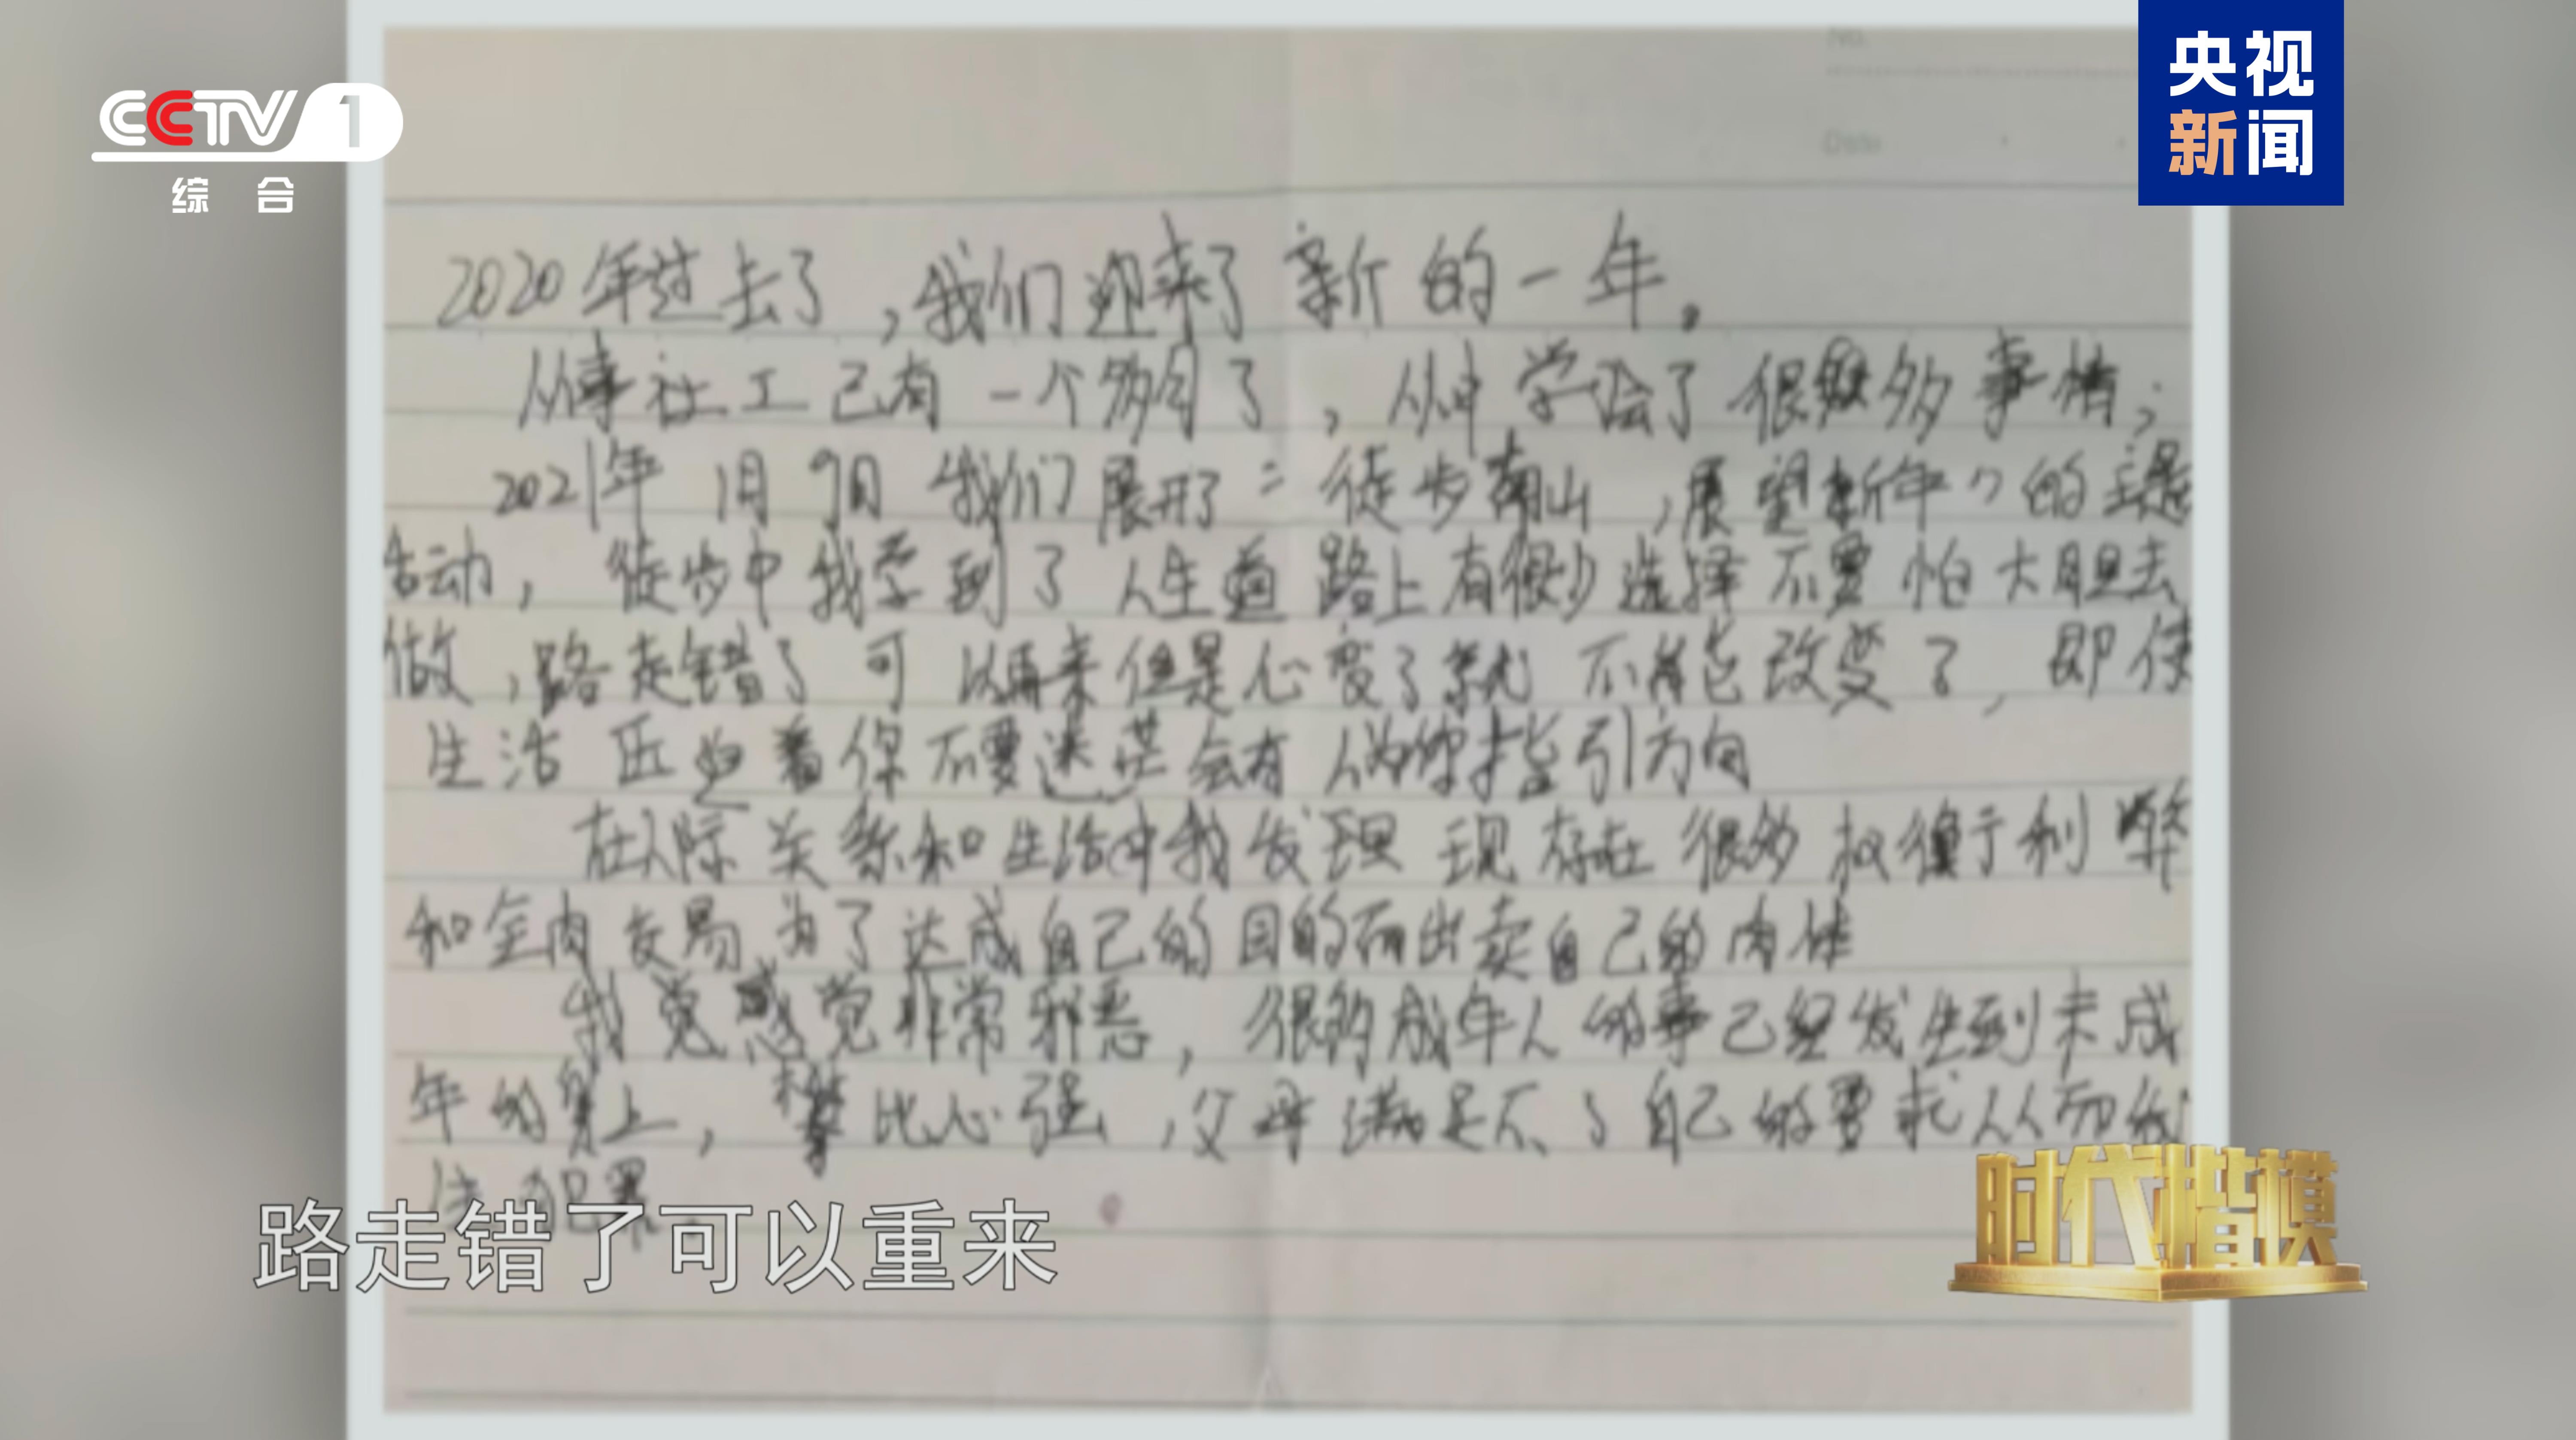 CCTV 1
综合
央视
新闻
No.
Date
2020年过去了,我们迎来了新的一年。
从事社工已有一个多月了,从中学会了很多事情;
2021年1月9日我们展开了“徒步南山,展望新年”的主题
活动,徒步中我学到了人生道路上有很多选择不要怕大胆去
做,路走错了可以再来但是心变了就不能改变了,即使
生活压迫着你不要迷茫会有人为你指引方向
在人际关系和生活中我发现现存在很多权衡于利弊
和全肉交易为了达成自己的目的而出卖自己的肉体
我觉感觉非常邪恶,很多成年人的事已经发生到未成
年的身上,攀比心强,父母满足不了自己的要求从而
犯罪
路走错了可以重来
时代楷模